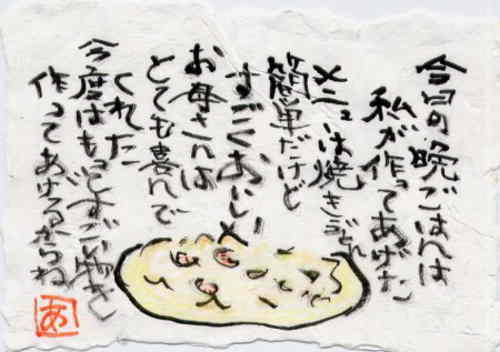 今日の晩ごはんは
私が作ってあげた
メニューは焼きうどん
簡単だけど
すごくおいしいと
お母さんは
とても喜んで
くれた
今度はもっとすごい物を
作ってあげるからね
あ